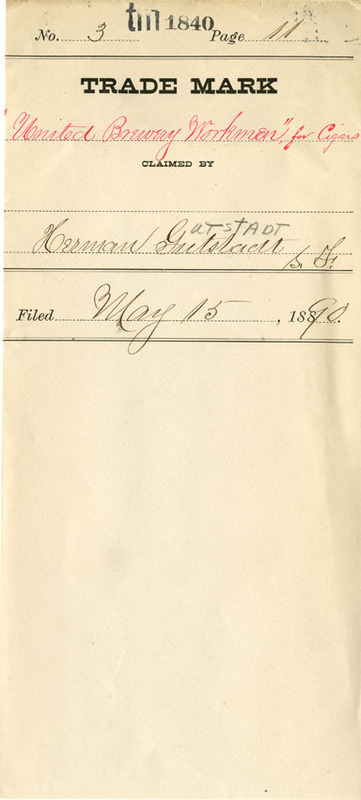 tm 1840
No. 3 Page 11
TRADE MARK
"United Brewery Workmen", for Cigars
CLAIMED BY
UTSTADT
Herman Gutstadt S. F.
Filed May 15, 1890.